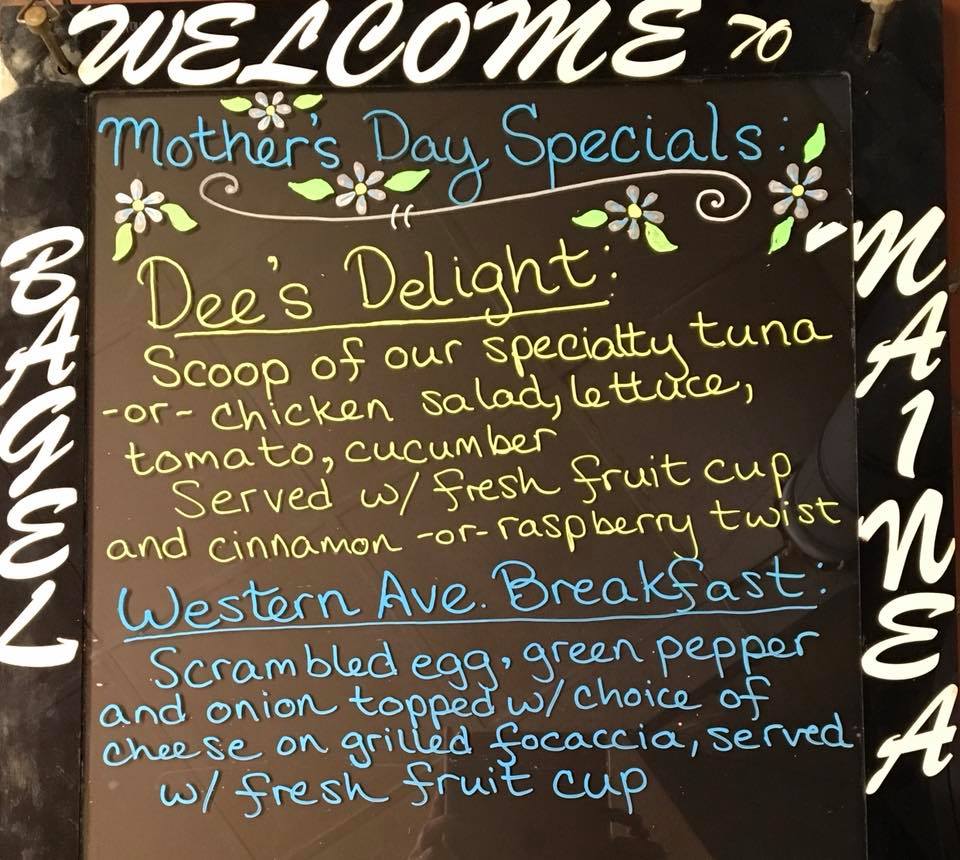 WELCOME TO
BAGEL
MAINEA
Mother's Day Specials:
Dee's Delight:
Scoop of our specialty tuna
-or- chicken salad, lettuce,
tomato, cucumber
Served w/ fresh fruit cup
and cinnamon -or- raspberry twist
Western Ave. Breakfast:
Scrambled egg, green pepper
and onion topped w/ choice of
cheese on grilled focaccia, served
w/ fresh fruit cup